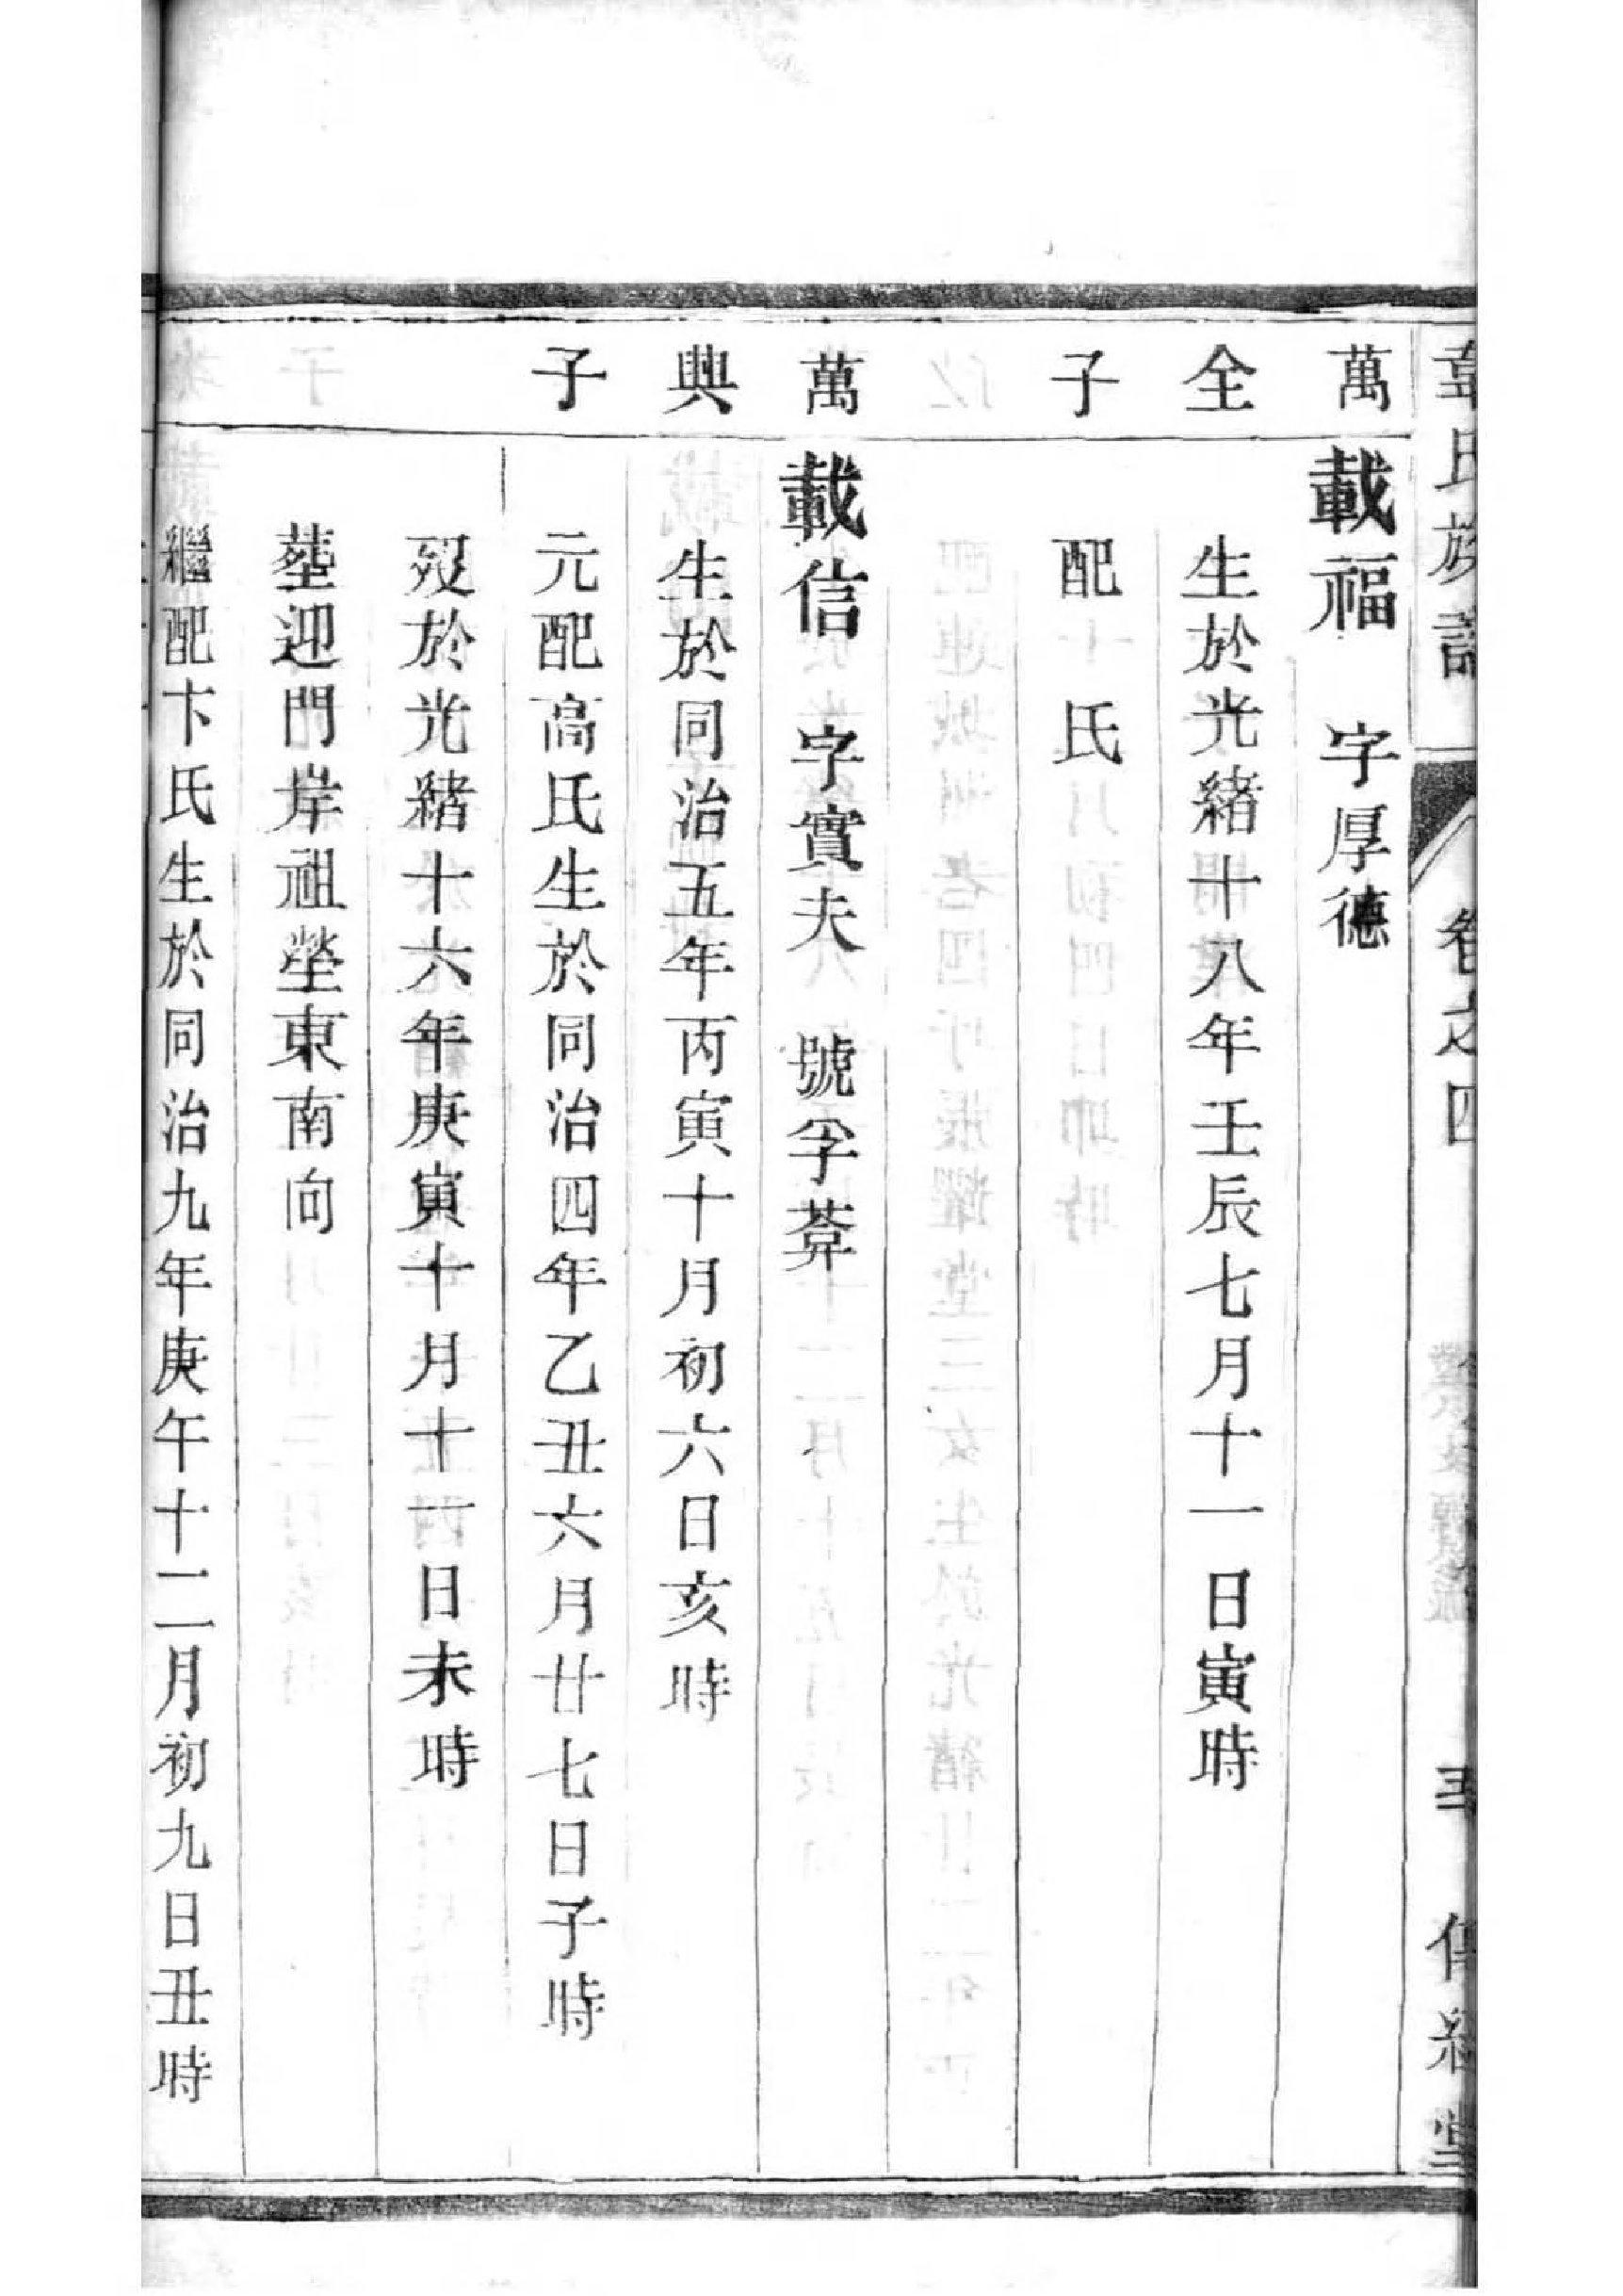 韋氏族譜 卷之四 傳經堂
萬 載福 字厚德
全 生於光緒十八年壬辰七月十一日寅時
子 配 氏
萬 載信 字實夫 號孚葊
興 生於同治五年丙寅十月初六日亥時
子 元配高氏生於同治四年乙丑六月廿七日子時
歿於光緒十六年庚寅十月十一日未時
塟迎門岸祖塋東南向
繼配卞氏生於同治九年庚午十二月初九日丑時